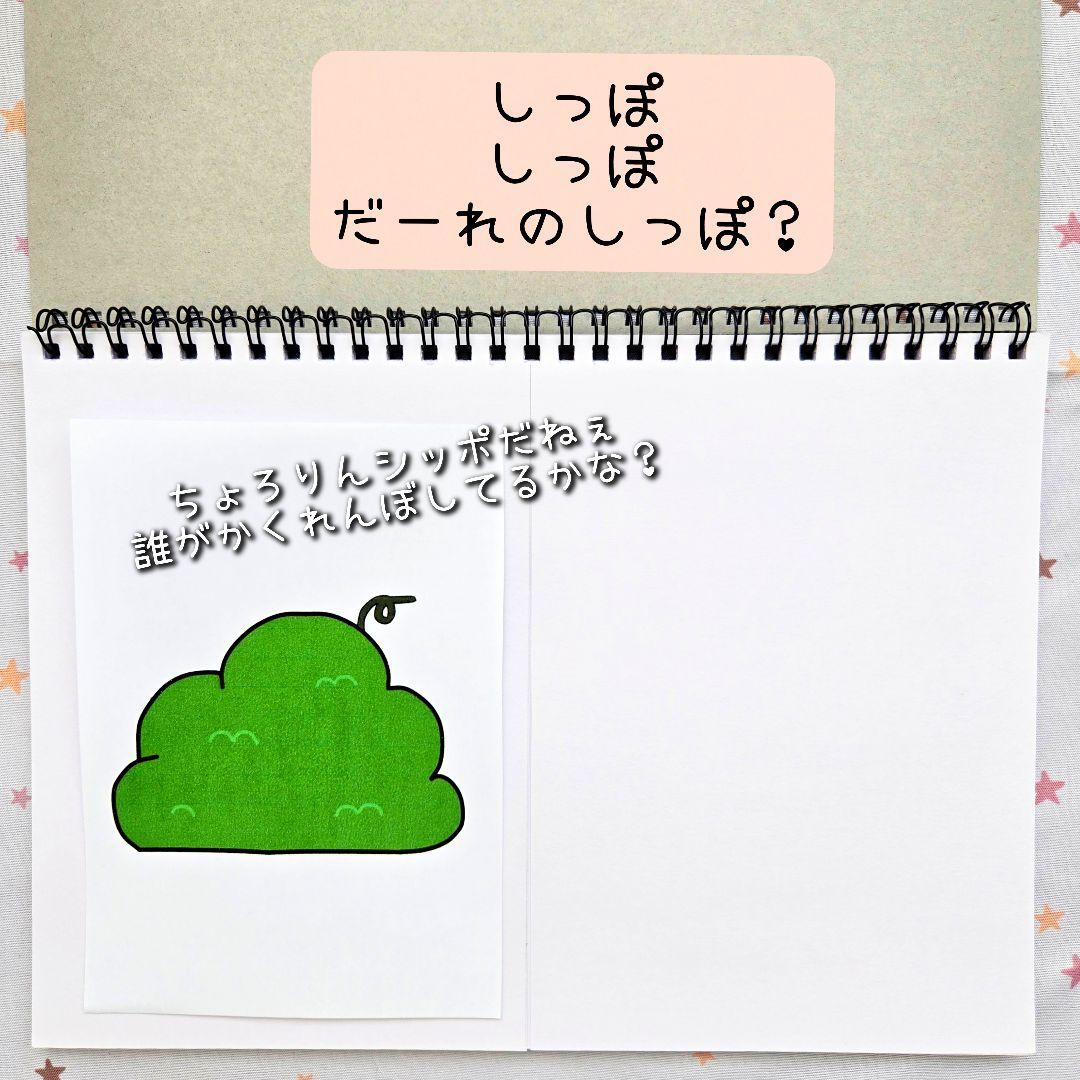 しっぽ
しっぽ
だーれのしっぽ？
ちょろりんシッポだねぇ
誰がかくれんぼしてるかな？